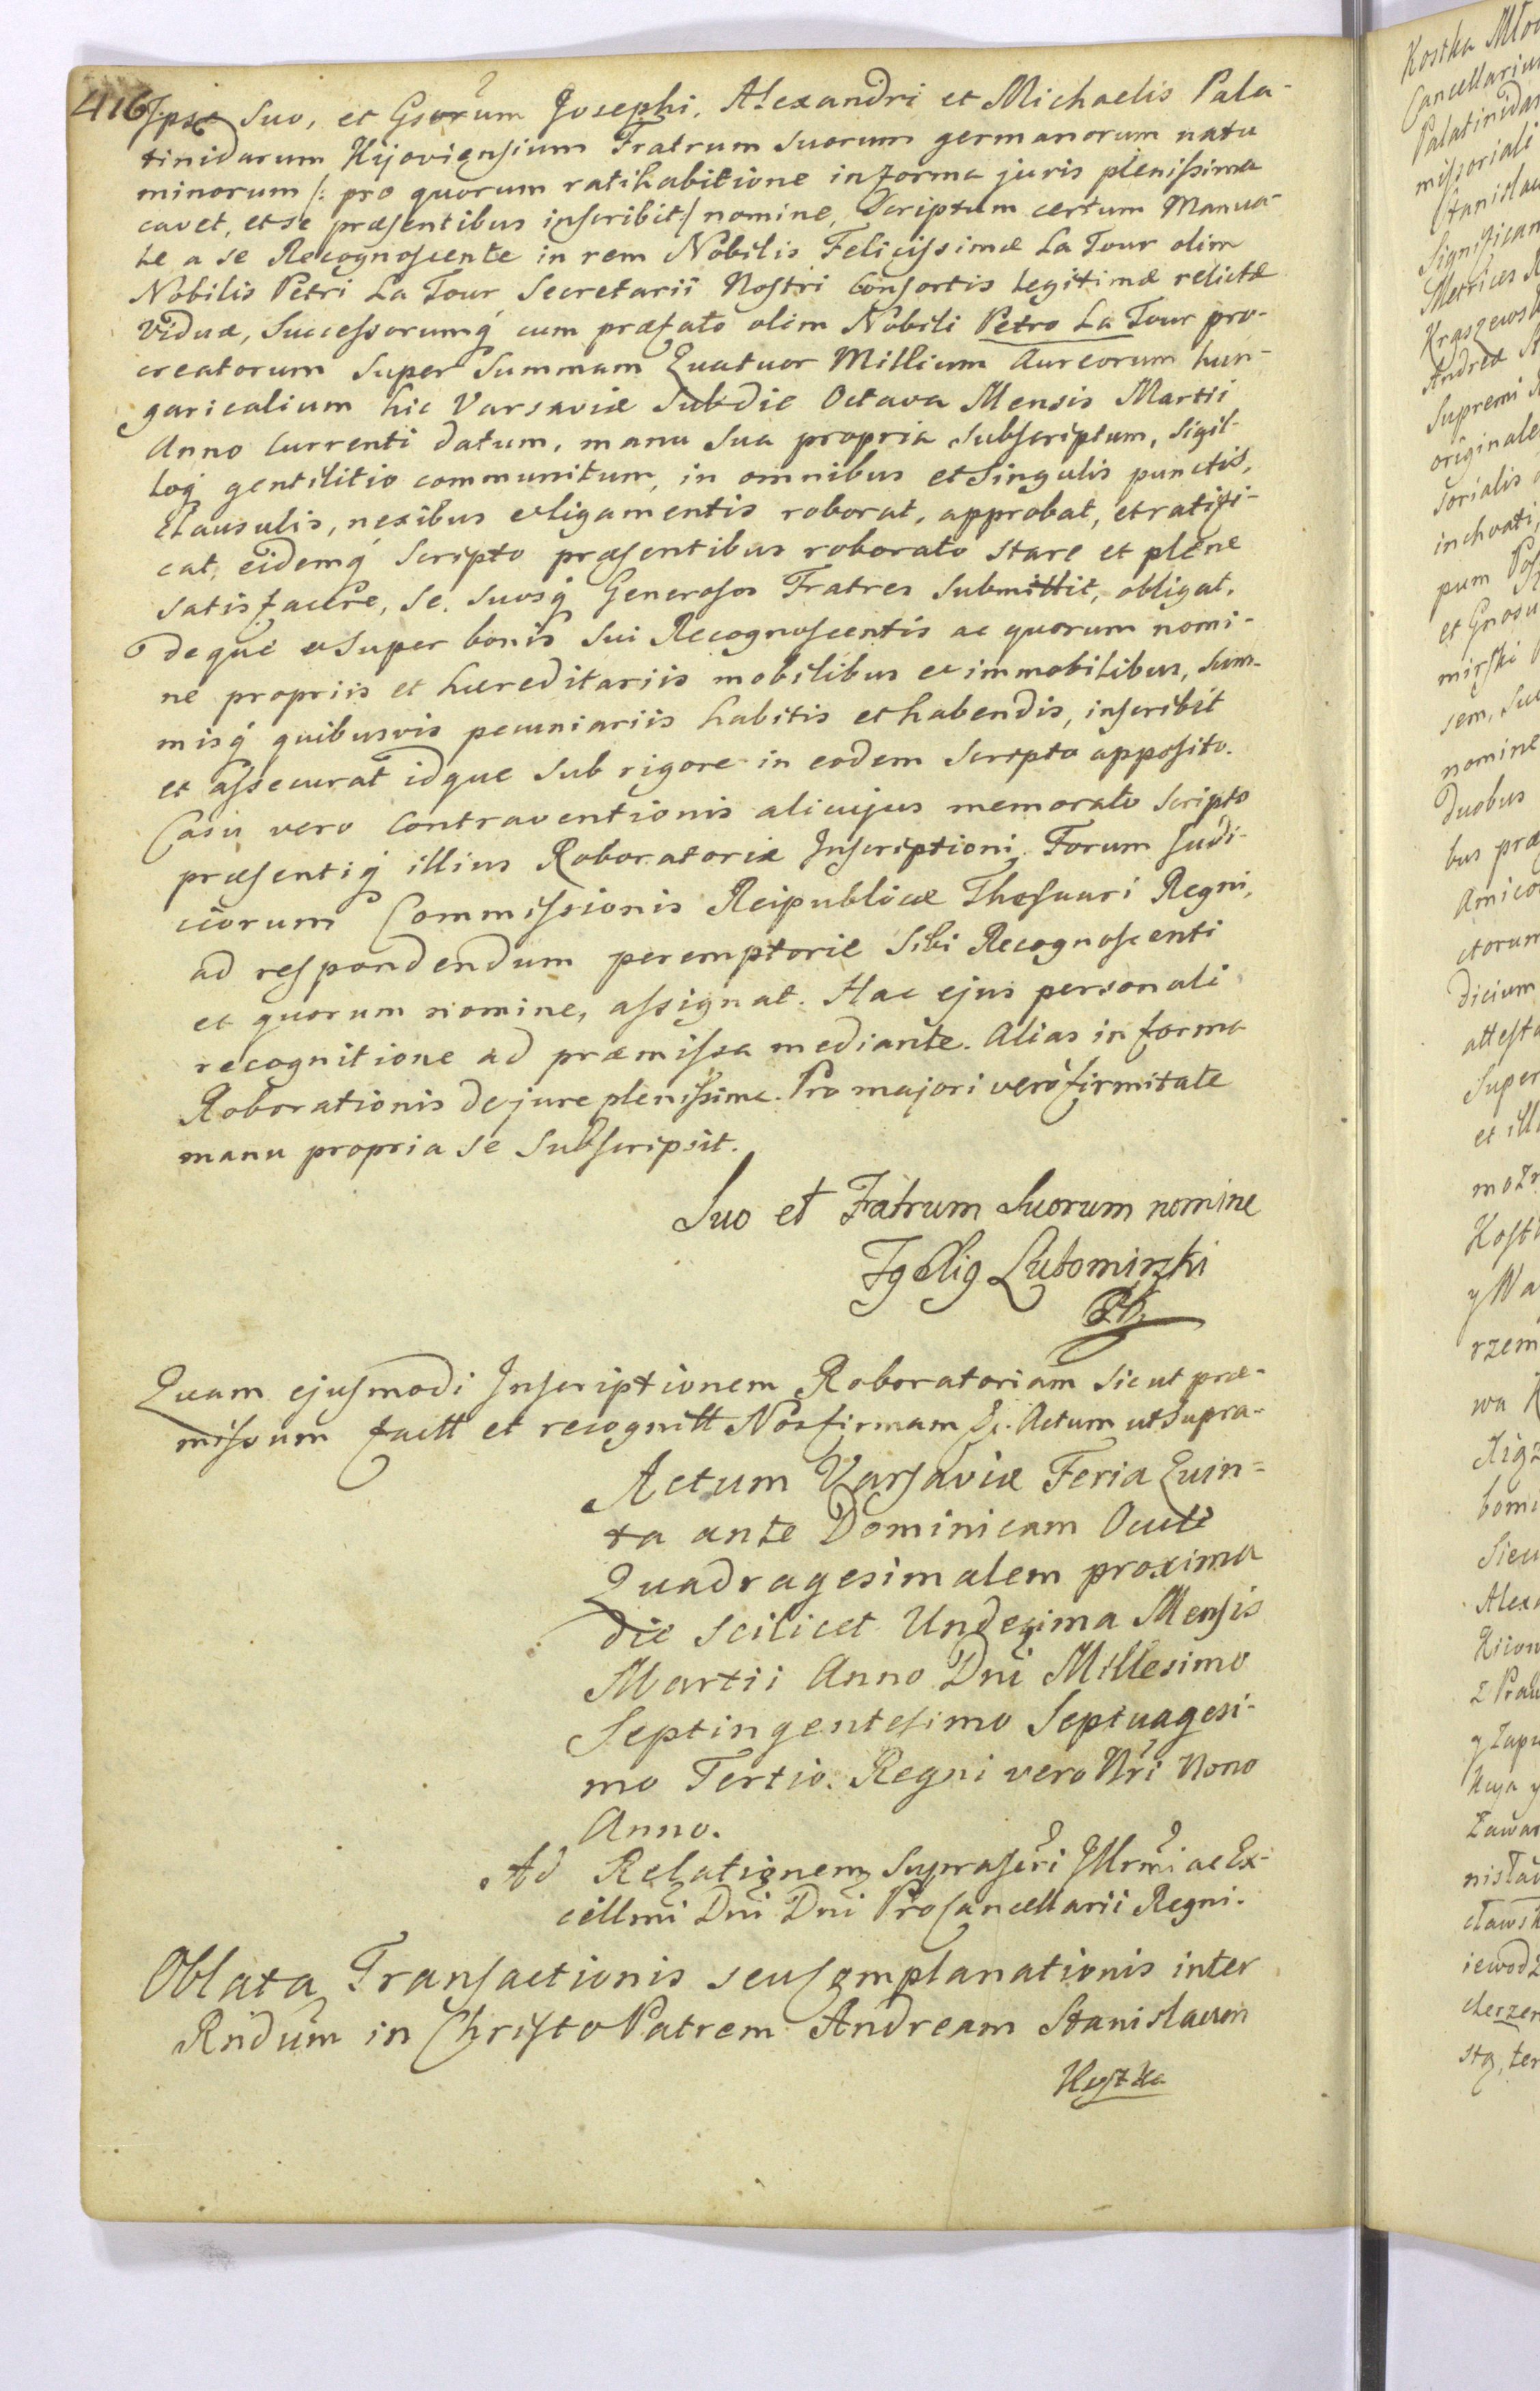 416
Ipse Suo, et Gsorum Josephi, Alexandri et Michaelis Pala-
tinidarum Kijoviensium Fratrum suorum germanorum natu
minorum /: pro quorum ratihabitione in forma juris plenissima
cavet, et se præsentibus inscribit :/ nomine, Scriptum certum Manua-
le a se Recognoscente in rem Nobilis Felicissimæ La Tour olim
Nobilis Petri La Tour Secretarii Nostri Consortis legitimæ relictæ
Viduæ, Successorumq cum præfato olim Nobili Petro La Tour pro-
creatorum Super Summam Quatuor Millium Aureorum hun-
garicalium hic Varsaviæ Sub die Octava Mensis Martii
Anno Currenti datum, manu Sua propria Subscriptum, Sigil-
loq gentilitio communitum, in omnibus et Singulis punctis,
Clausulis, nexibus et ligamentis roborat, approbat, et ratifi-
cat, eidemq Scripto præsentibus roborato stare et plene
satisfacere, Se, Suosq Generosos Fratres Submittit, obligat,
deque et Super bonis Sui Recognoscentis ac quorum nomi-
ne propriis et hæreditariis mobilibus et immobilibus, Sum-
misq quibusvis pecuniariis habitis et habendis, inscribit
et assecurat idque Sub rigore in eodem Scripto apposito.
Casu vero Contraventionis alicujus memorato Scripto
præsentiq illius Roboratoriæ Inscriptioni. Forum Judi-
ciorum Commissionis Reipublicæ Thesauri Regni,
ad respondendum peremptorie Sibi Recognoscenti
et quorum nomine, assignat. Hac ejus personali
recognitione ad præmissa mediante. Alias in forma
Roborationis de jure plenissima. Pro majori vero firmitate
manu propria se Subscripsit.
Suo et Fratrum Suorum nomine
Lubomirski
Quam ejusmodi Inscriptionem Roboratoriam Sic ut præ-
missum factt et recognitt Nos firmam &c. Actum ut Supra-
Actum Varsaviæ Feria Quin-
ta ante Dominicam Oculi
Quadragesimalem proxima
die scilicet Undecima Mensis
Martii Anno Dni Millesimo
Septingentesimo Septuagesi-
mo Tertio. Regni vero Nri Nono
Anno.
Ad Relationem Suprascri Illrmi ac Ex-
cellmi Dni Dni Procancellarii Regni.
Oblata Transactionis seu Complanationis inter
Rndum in Christo Patrem Andream Stanislaum
Kostka
Kostka
Cancellariu
Palatinidar
missoriali
Stanislau
Significan
Metrices
Kraszewsk
Andreæ
Supremi
originale
sorialis
inchoati,
pum
et Gnosu
mirski
sem, Suo
nomine
duobus
bus præ
Amico
ctorum
dicium
attesta
Super
et ill
Kost
y Wa
rzem
wa
Sicu
Alexa
y Zapi
Zawar
nisław
iewodz